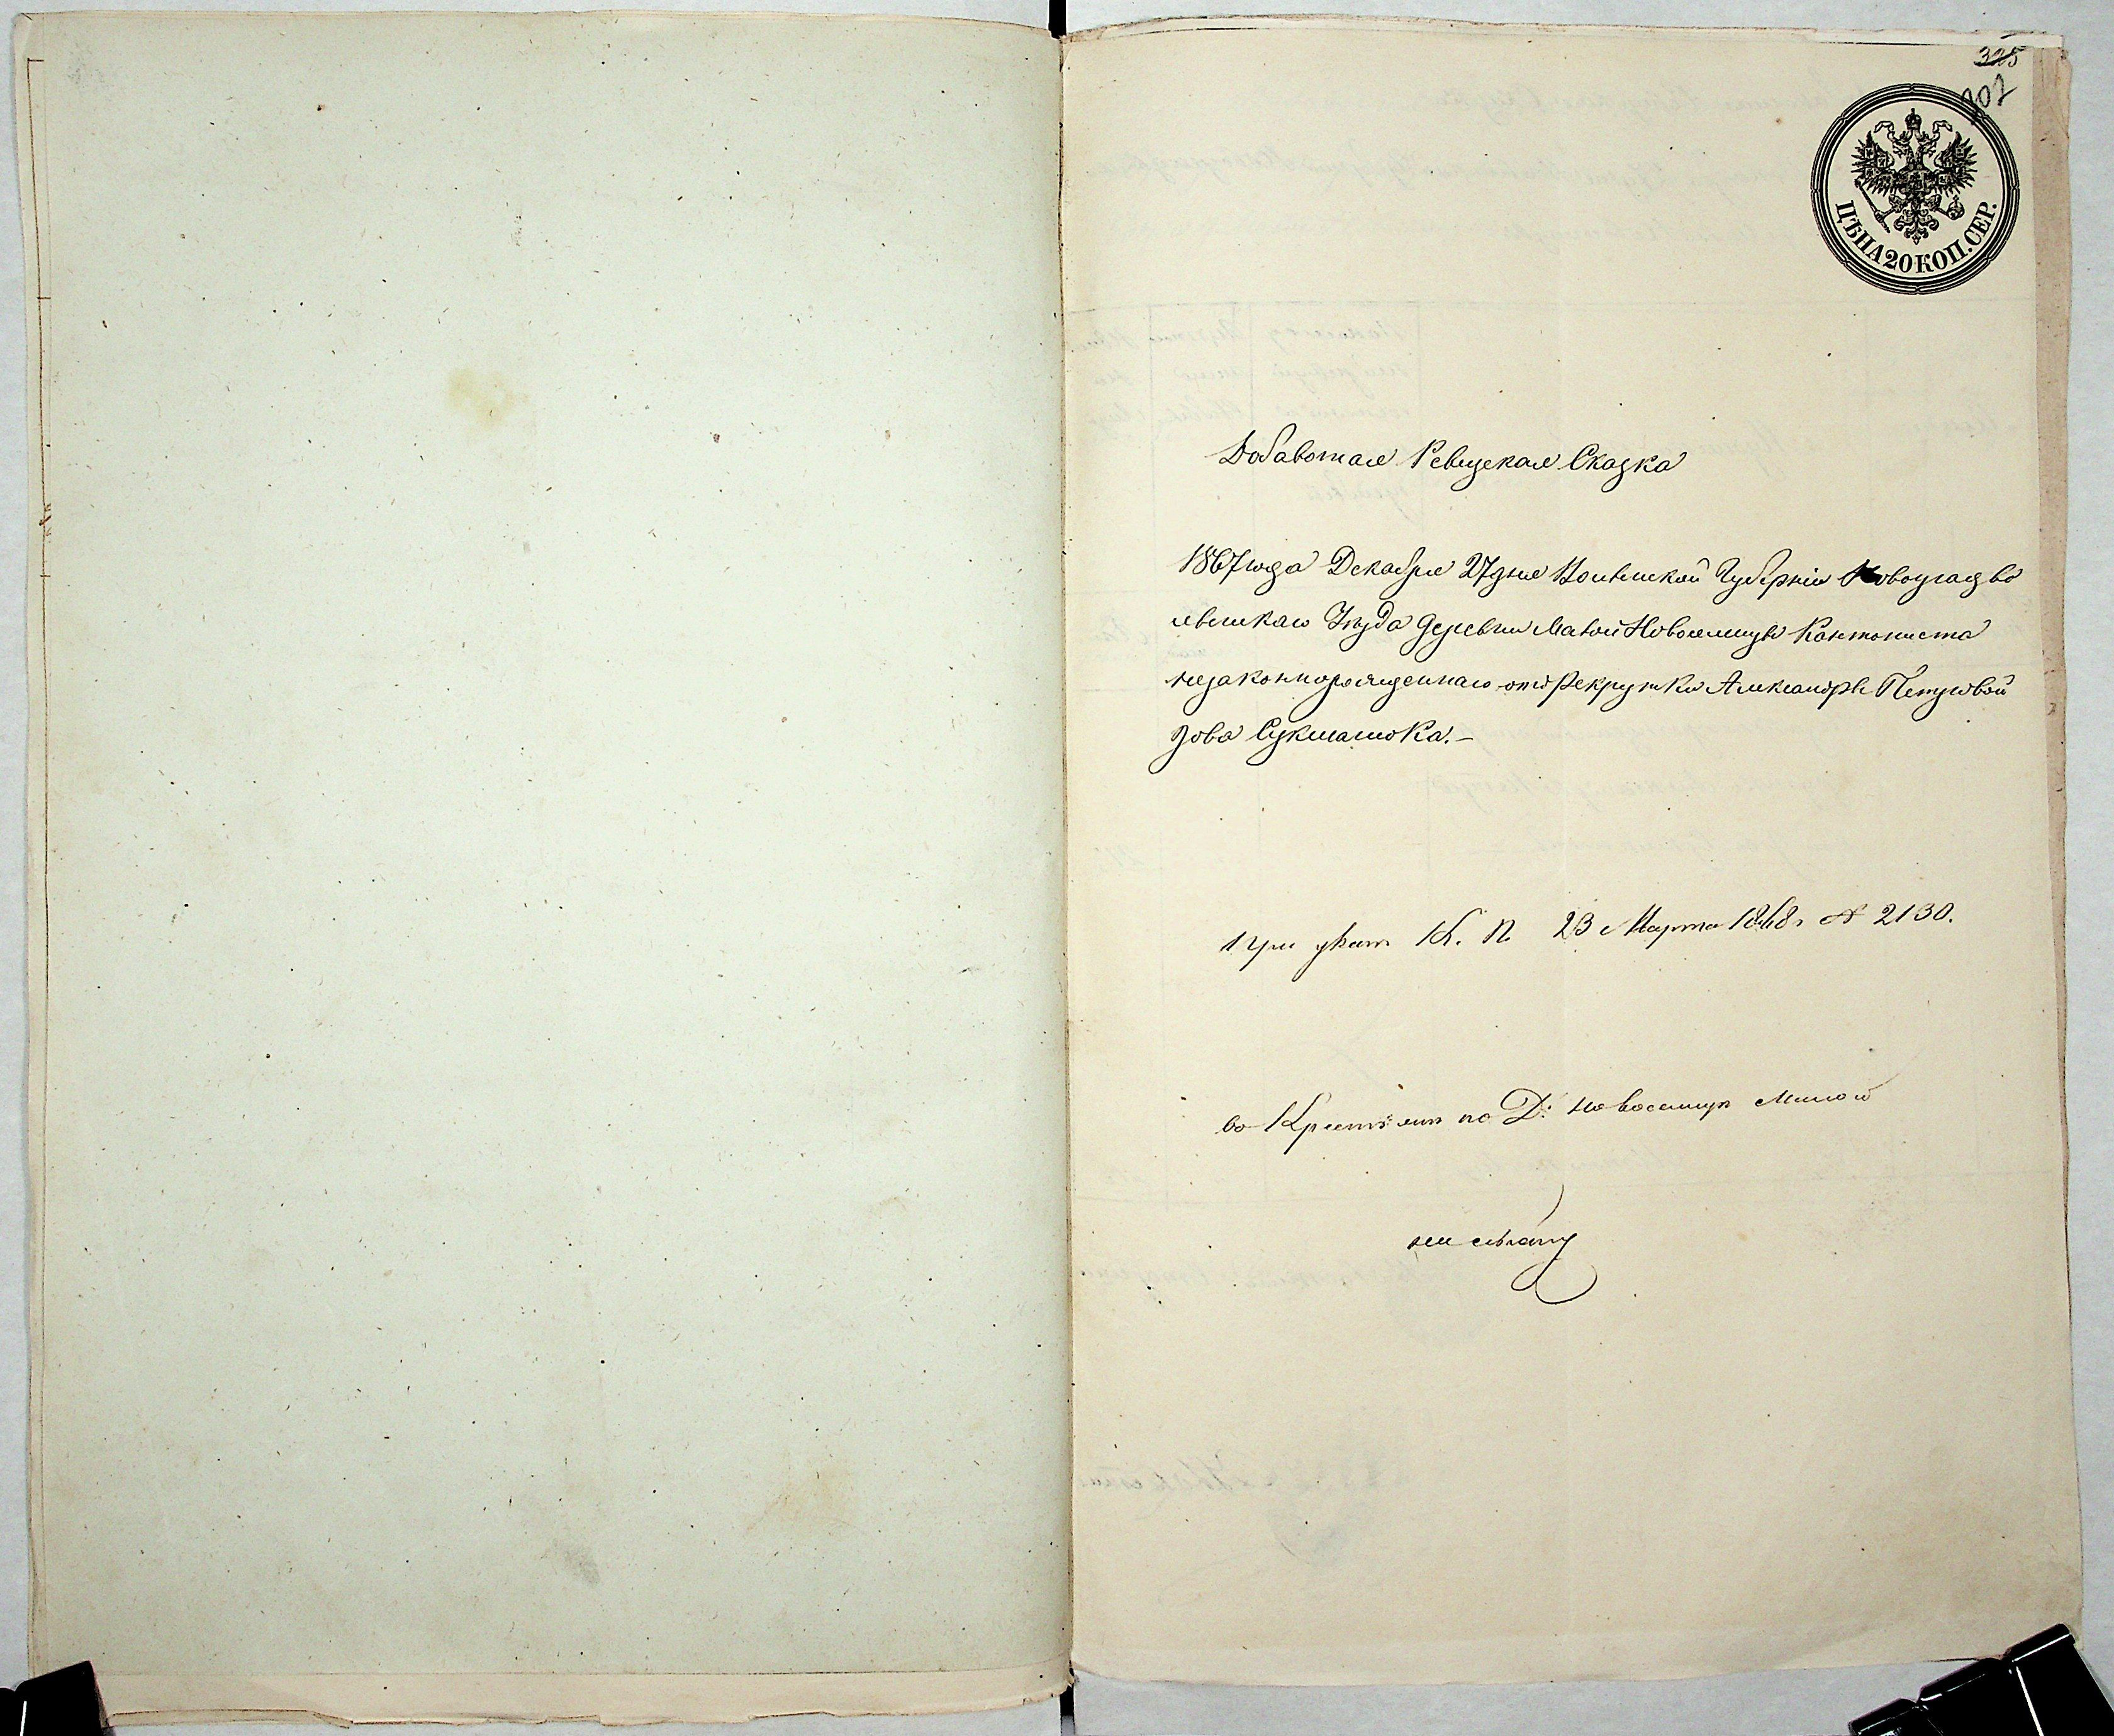 325
207
ЦѢНА 20 КОП. СЕР.
Добавочная Ревизская Сказка
1867 года Декабря 27 дня Волынской Губерніи Новоградво
лынскаго Уѣзда деревни Малой Новоселицы Кантониста
незаконнорожденнаго отъ Рекрутки Александры Петровой
При указѣ К. П. 23 Марта 1868 г № 2130.
въ Крестьяне по Д: Новоселицѣ Малой